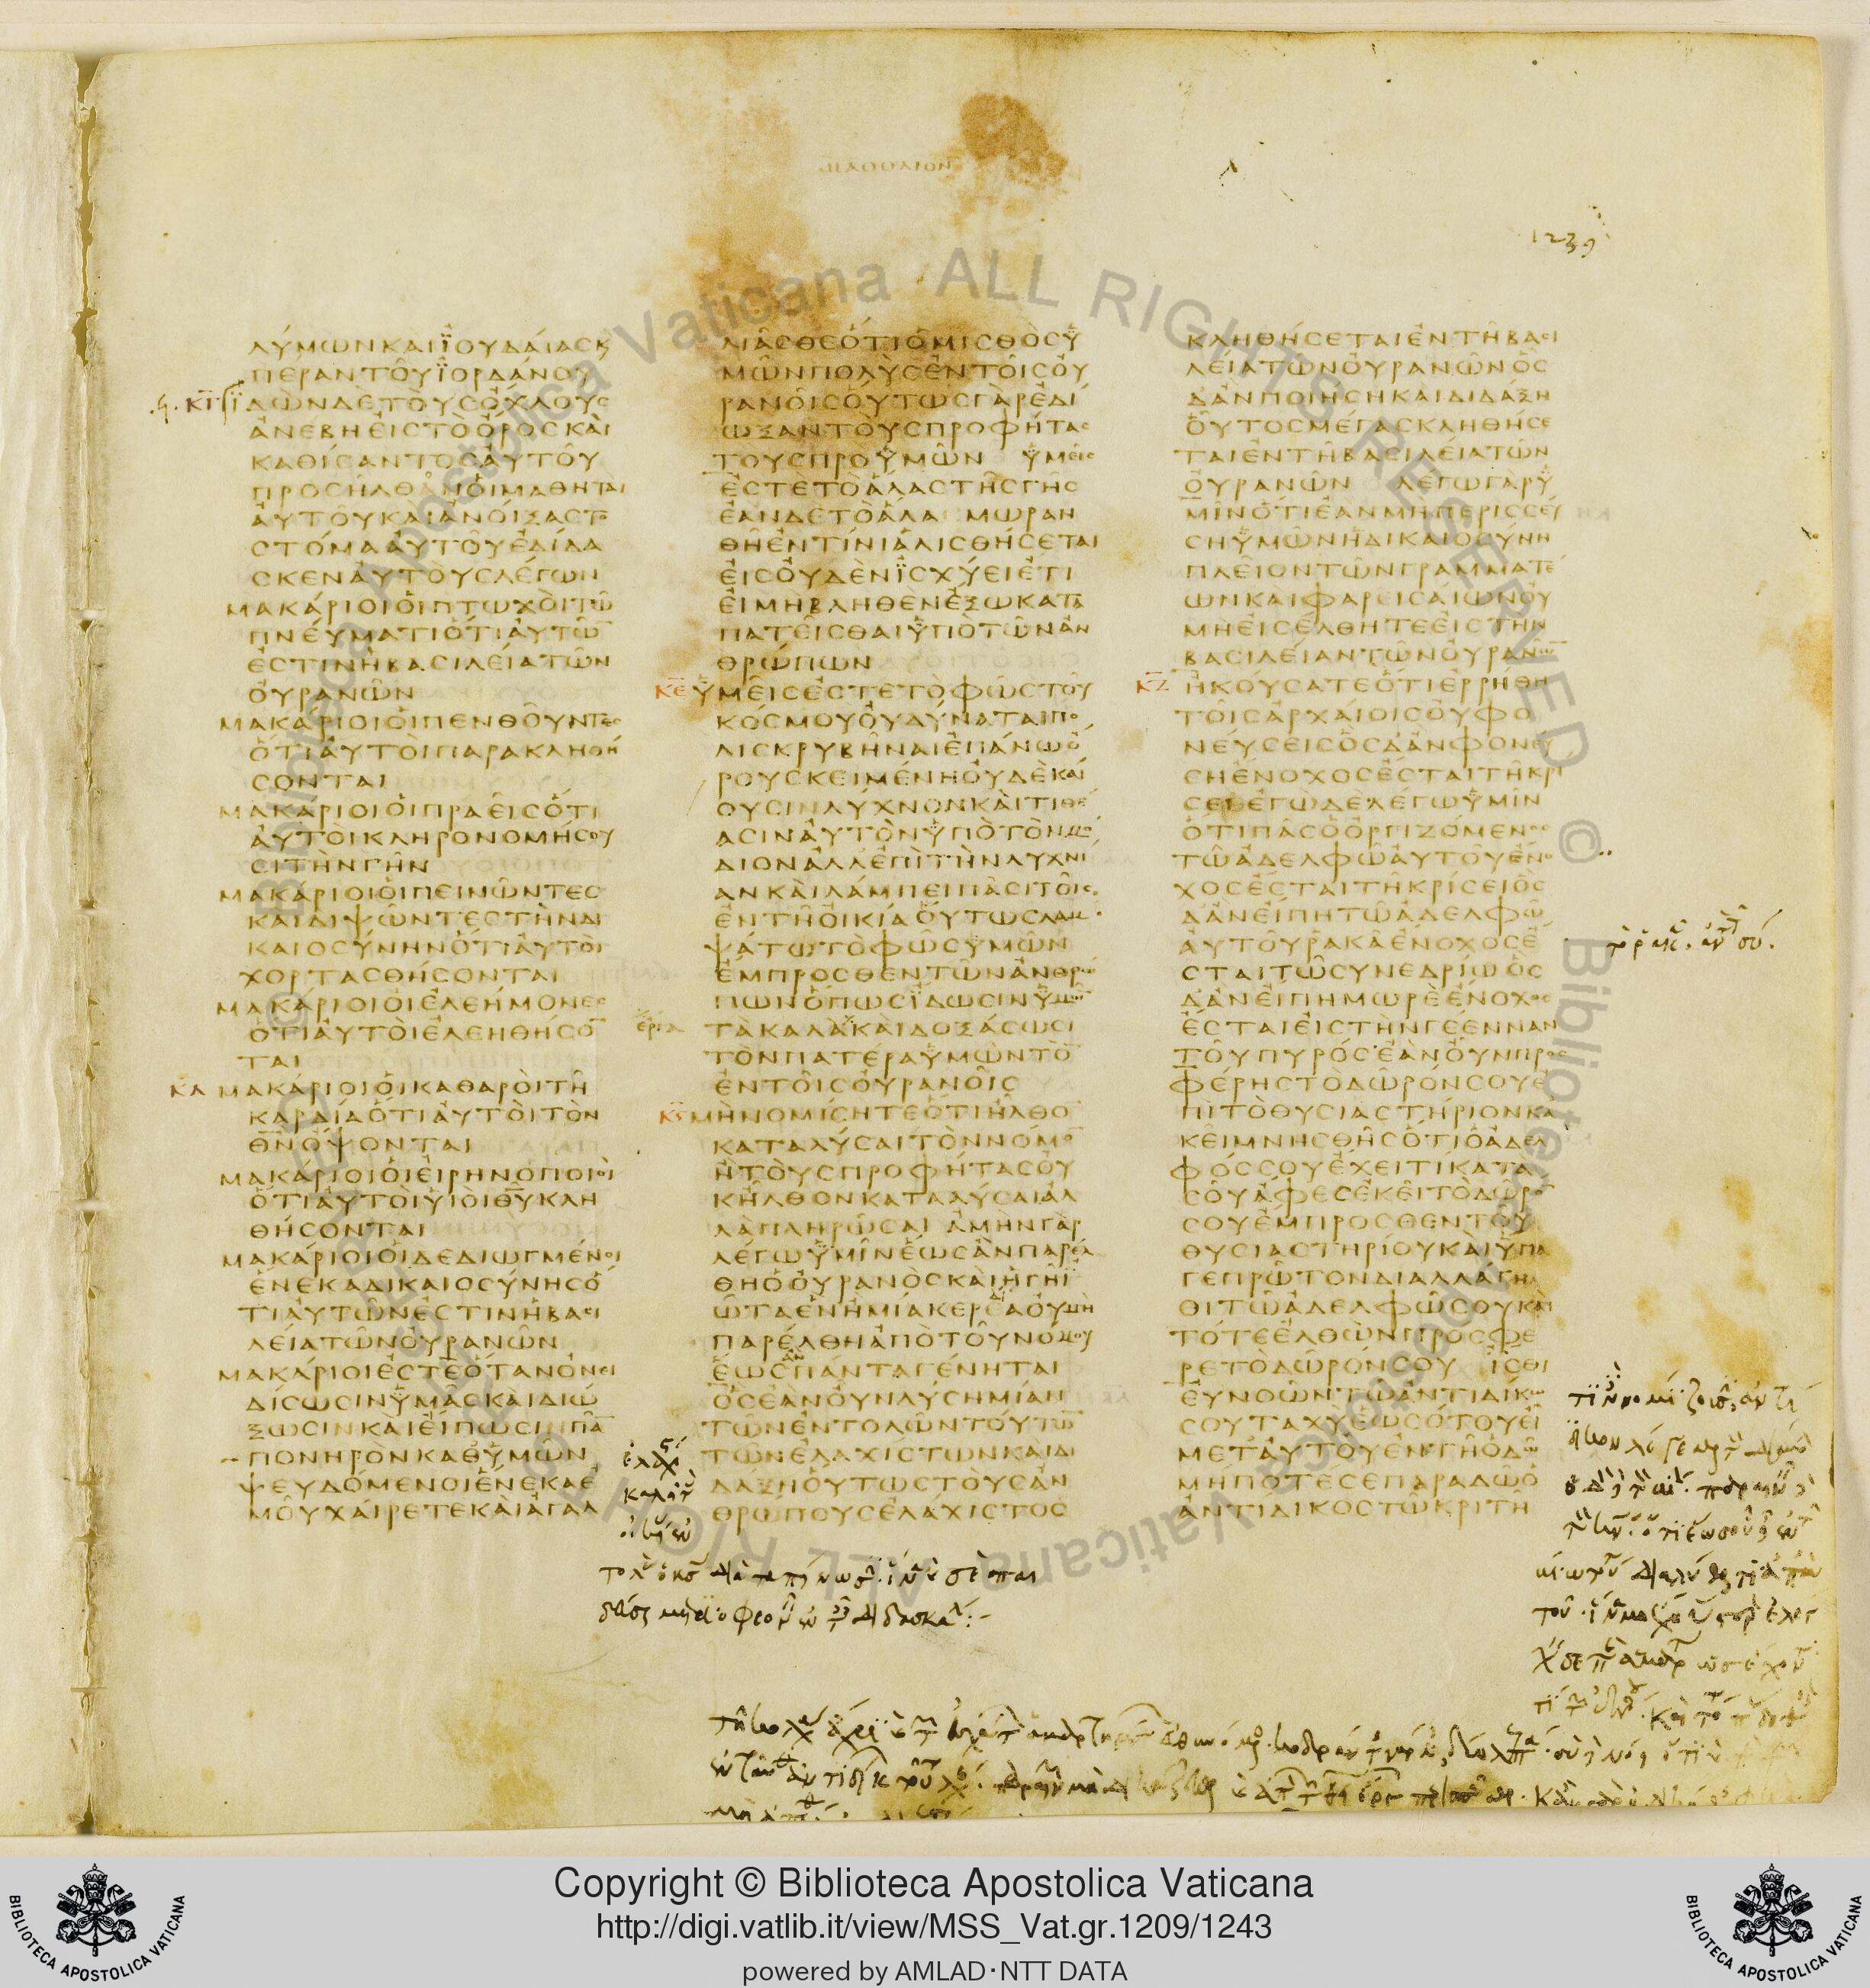 ΜΑΘΘΑΙΟΝ
1239
ΛΥΜΩΝΚΑΙΪΟΥΔΑΙΑΣΚ
ΠΕΡΑΝΤΟΥΪΟΡΔΑΝΟΥ
ΚΙ ΪΔΩΝΔΕΤΟΥΣΟΧΛΟΥΣ
ΑΝΕΒΗΕΙΣΤΟΟΡΟΣΚΑΙ
ΚΑΘΙΣΑΝΤΟΣΑΥΤΟΥ
ΠΡΟΣΗΛΘΑΝΟΙΜΑΘΗΤΑΙ
ΑΥΤΟΥΚΑΙΑΝΟΙΞΑΣΤΟ
ΣΤΟΜΑΑΥΤΟΥΕΔΙΔΑ
ΣΚΕΝΑΥΤΟΥΣΛΕΓΩΝ
ΜΑΚΑΡΙΟΙΟΙΠΤΩΧΟΙΤΩ
ΠΝΕΥΜΑΤΙΟΤΙΑΥΤΩ̅
ΕΣΤΙΝΗΒΑΣΙΛΕΙΑΤΩΝ
ΟΥΡΑΝΩΝ
ΜΑΚΑΡΙΟΙΟΙΠΕΝΘΟΥΝΤΕΣ
ΟΤΙΑΥΤΟΙΠΑΡΑΚΛΗΘΗ
ΣΟΝΤΑΙ
ΜΑΚΑΡΙΟΙΟΙΠΡΑΕΙΣΟΤΙ
ΑΥΤΟΙΚΛΗΡΟΝΟΜΗΣΟΥ
ΣΙΤΗΝΓΗΝ
ΜΑΚΑΡΙΟΙΟΙΠΕΙΝΩΝΤΕΣ
ΚΑΙΔΙΨΩΝΤΕΣΤΗΝΔΙ
ΚΑΙΟΣΥΝΗΝΟΤΙΑΥΤΟΙ
ΧΟΡΤΑΣΘΗΣΟΝΤΑΙ
ΜΑΚΑΡΙΟΙΟΙΕΛΕΗΜΟΝΕΣ
ΟΤΙΑΥΤΟΙΕΛΕΗΘΗΣΟ̅
ΤΑΙ
ΚΔ ΜΑΚΑΡΙΟΙΟΙΚΑΘΑΡΟΙΤΗ
ΚΑΡΔΙΑΟΤΙΑΥΤΟΙΤΟΝ
Θ̅Ν̅ΟΨΟΝΤΑΙ
ΜΑΚΑΡΙΟΙΟΙΕΙΡΗΝΟΠΟΙΟΙ
ΟΤΙΑΥΤΟΙΥΙΟΙΘ̅Υ̅ΚΛΗ
ΘΗΣΟΝΤΑΙ
ΜΑΚΑΡΙΟΙΟΙΔΕΔΙΩΓΜΕΝΟΙ
ΕΝΕΚΑΔΙΚΑΙΟΣΥΝΗΣΟ
ΤΙΑΥΤΩΝΕΣΤΙΝΗΒΑΣΙ
ΛΕΙΑΤΩΝΟΥΡΑΝΩΝ
ΜΑΚΑΡΙΟΙΕΣΤΕΟΤΑΝΟΝΕΙ
ΔΙΣΩΣΙΝΥΜΑΣΚΑΙΔΙΩ
ΞΩΣΙΝΚΑΙΕΙΠΩΣΙΝΠΑ̅
ΠΟΝΗΡΟΝΚΑΘΥΜΩΝ
ΨΕΥΔΟΜΕΝΟΙΕΝΕΚΑΕ
ΜΟΥΧΑΙΡΕΤΕΚΑΙΑΓΑΛ
ΛΙΑΣΘΕΟΤΙΟΜΙΣΘΟΣΥ
ΜΩΝΠΟΛΥΣΕΝΤΟΙΣΟΥ
ΡΑΝΟΙΣΟΥΤΩΣΓΑΡΕΔΙ
ΩΞΑΝΤΟΥΣΠΡΟΦΗΤΑΣ
ΤΟΥΣΠΡΟΥΜΩΝ ΥΜΕΙΣ
ΕΣΤΕΤΟΑΛΑΣΤΗΣΓΗΣ
ΕΑΝΔΕΤΟΑΛΑ ΜΩΡΑΝ
ΘΗΕΝΤΙΝΙΑΛΙΣΘΗΣΕΤΑΙ
ΕΙΣΟΥΔΕΝΪΣΧΥΕΙΕΤΙ
ΕΙΜΗΒΛΗΘΕΝΕΞΩΚΑΤΑ
ΠΑΤΕΙΣΘΑΙΥΠΟΤΩΝΑΝ
ΘΡΩΠΩΝ
ΚΕ ΥΜΕΙΣΕΣΤΕΤΟΦΩΣΤΟΥ
ΚΟΣΜΟΥΟΥΔΥΝΑΤΑΙΠΟ
ΛΙΣΚΡΥΒΗΝΑΙΕΠΑΝΩΟ
ΡΟΥΣΚΕΙΜΕΝΗΟΥΔΕΚΑΙ
ΟΥΣΙΝΛΥΧΝΟΝΚΑΙΤΙΘΕ
ΑΣΙΝΑΥΤΟΝΥΠΟΤΟΝΜΟ
ΔΙΟΝΑΛΛΕΠΙΤΗΝΛΥΧΝΙ
ΑΝΚΑΙΛΑΜΠΕΙΠΑΣΙΤΟΙΣ
ΕΝΤΗΟΙΚΙΑΟΥΤΩΣΛΑΜ
ΨΑΤΩΤΟΦΩΣΥΜΩΝ
ΕΜΠΡΟΣΘΕΝΤΩΝΑΝΘΡΩ
ΠΩΝΟΠΩΣΪΔΩΣΙΝΥΜΩ̅
ΕΡΓΑ ΤΑΚΑΛΑΚΑΙΔΟΞΑΣΩΣΙ
ΤΟΝΠΑΤΕΡΑΥΜΩΝΤΟ̅
ΕΝΤΟΙΣΟΥΡΑΝΟΙΣ
ΚϚ ΜΗΝΟΜΙΣΗΤΕΟΤΙΗΛΘΟ̅
ΚΑΤΑΛΥΣΑΙΤΟΝΝΟΜΟ̅
ΗΤΟΥΣΠΡΟΦΗΤΑΣΟΥ
ΚΗΛΘΟΝΚΑΤΑΛΥΣΑΙΑΛ
ΛΑΠΛΗΡΩΣΑΙ ΑΜΗΝΓΑΡ
ΛΕΓΩΥΜΙΝΕΩΣΑΝΠΑΡΕΛ
ΘΗΟΟΥΡΑΝΟΣΚΑΙΗΓΗΪ
ΩΤΑΕΝΗΜΙΑΚΕΡΕΑΟΥΜΗ
ΠΑΡΕΛΘΗΑΠΟΤΟΥΝΟΜΟΥ
ΕΩΣΠΑΝΤΑΓΕΝΗΤΑΙ
ΟΣΕΑΝΟΥΝΛΥΣΗΜΙΑΝ
ΤΩΝΕΝΤΟΛΩΝΤΟΥΤΩ̅
ΤΩΝΕΛΑΧΙΣΤΩΝΚΑΙΔΙ
ΔΑΞΗΟΥΤΩΣΤΟΥΣΑΝ
ΘΡΩΠΟΥΣΕΛΑΧΙΣΤΟΣ
ΚΛΗΘΗΣΕΤΑΙΕΝΤΗΒΑΣΙ
ΛΕΙΑΤΩΝΟΥΡΑΝΩΝΟΣ
ΔΑΝΠΟΙΗΣΗΚΑΙΔΙΔΑΞΗ
ΟΥΤΟΣΜΕΓΑΣΚΛΗΘΗΣΕ
ΤΑΙΕΝΤΗΒΑΣΙΛΕΙΑΤΩΝ
ΟΥΡΑΝΩΝ ΛΕΓΩΓΑΡΥ
ΜΙΝΟΤΙΕΑΝΜΗΠΕΡΙΣΣΕΥ
ΣΗΥΜΩΝΗΔΙΚΑΙΟΣΥΝΗ
ΠΛΕΙΟΝΤΩΝΓΡΑΜΜΑΤΕ
ΩΝΚΑΙΦΑΡΕΙΣΑΙΩΝΟΥ
ΜΗΕΙΣΕΛΘΗΤΕΕΙΣΤΗΝ
ΒΑΣΙΛΕΙΑΝΤΩΝΟΥΡΑΝΩ̅
ΚΖ ΗΚΟΥΣΑΤΕΟΤΙΕΡΡΗΘΗ
ΤΟΙΣΑΡΧΑΙΟΙΣΟΥΦΟ
ΝΕΥΣΕΙΣΟΣΔΑΝΦΟΝΕΥ
ΣΗΕΝΟΧΟΣΕΣΤΑΙΤΗΚΡΙ
ΣΕΙΕΓΩΔΕΛΕΓΩΥΜΙΝ
ΟΤΙΠΑΣΟΟΡΓΙΖΟΜΕΝΟΣ
ΤΩΑΔΕΛΦΩΑΥΤΟΥΕΝΟ
ΧΟΣΕΣΤΑΙΤΗΚΡΙΣΕΙΟΣ
ΔΑΝΕΙΠΗΤΩΑΔΕΛΦΩ
ΑΥΤΟΥΡΑΚΑΕΝΟΧΟΣΕ
ΣΤΑΙΤΩΣΥΝΕΔΡΙΩΟΣ
ΔΑΝΕΙΠΗΜΩΡΕΕΝΟΧΟΣ
ΕΣΤΑΙΕΙΣΤΗΝΓΕΕΝΝΑΝ
ΤΟΥΠΥΡΟΣΕΑΝΟΥΝΠΡΟΣ
ΦΕΡΗΣΤΟΔΩΡΟΝΣΟΥΕ
ΠΙΤΟΘΥΣΙΑΣΤΗΡΙΟΝΚΑ
ΚΕΙΜΝΗΣΘΗΣΟΤΙΟΑΔΕΛ
ΦΟΣΣΟΥΕΧΕΙΤΙΚΑΤΑ
ΣΟΥΑΦΕΣΕΚΕΙΤΟΔΩΡΟ̅
ΣΟΥΕΜΠΡΟΣΘΕΝΤΟΥ
ΘΥΣΙΑΣΤΗΡΙΟΥΚΑΙΥΠΑ
ΓΕΠΡΩΤΟΝΔΙΑΛΛΑΓΗ
ΘΙΤΩΑΔΕΛΦΩΣΟΥΚΑΙ
ΤΟΤΕΕΛΘΩΝΠΡΟΣΦΕ
ΡΕΤΟΔΩΡΟΝΣΟΥ ΪΣΘΙ
ΕΥΝΟΩΝΤΩΑΝΤΙΔΙΚΩ
ΣΟΥΤΑΧΥΕΩΣΟΤΟΥΕΙ
ΜΕΤΑΥΤΟΥΕΝΤΗΟΔΩ
ΜΗΠΟΤΕΣΕΠΑΡΑΔΩΟ
ΑΝΤΙΔΙΚΟΣΤΩΚΡΙΤΗ
Copyright © Biblioteca Apostolica Vaticana
http://digi.vatlib.it/view/MSS_Vat.gr.1209/1243
powered by AMLAD·NTT DATA
BIBLIOTECA APOSTOLICA VATICANA
BIBLIOTECA APOSTOLICA VATICANA
© Biblioteca Apostolica Vaticana ALL RIGHTS RESERVED © Biblioteca Apostolica Vaticana ALL RIGH